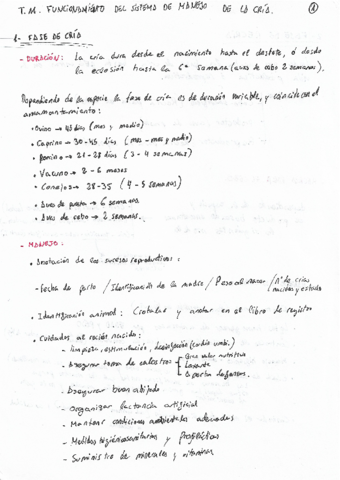 T.11. FUNCIONAMIENTO DEL SISTEMA DE MANEJO DE LA CRÍA.
1. FASE DE CRÍA
- DURACIÓN: La cría dura desde el nacimiento hasta el destete, ó desde
la eclosión hasta la 6ª semana (aves de cebo 2 semanas).
Dependiendo de la especie la fase de cría es de duración variable, y coincide con el
amamantamiento:
• Ovino → 45 días (mes y medio)
• Caprino → 30-45 días (mes - mes y medio)
• Porcino → 21-28 días (3-4 semanas)
• Vacuno → 2-6 meses
• Conejos → 28-35 (4-5 semanas)
• Aves de puesta → 6 semanas
• Aves de cebo → 2 semanas.
- MANEJO:
• Anotación de los sucesos reproductivos:
- Fecha de parto / Identificación de la madre / Peso al nacer / Nº de crías nacidas y estado
• Identificación animal: Crotalar y anotar en el libro de registro
• Cuidados al recién nacido:
- Limpieza, estimulación, desinfección (cordón umbi.)
- Asegurar toma de calostros
- Gran valor nutritivo
- Laxante
- Aporta defensas.
- Asegurar buen ahijado
- Organizar lactancia artificial
- Mantener condiciones ambientales adecuadas
- Medidas higiénicosanitarias y profilácticas
- Suministro de minerales y vitaminas